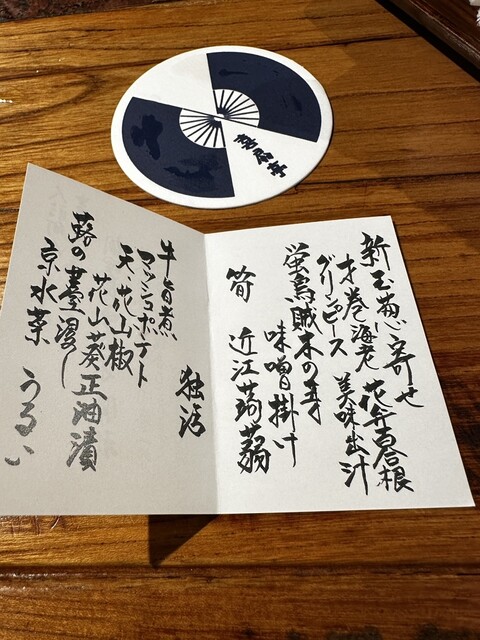 喜扇亭
新玉葱寄せ
才巻海老 花弁百合根
グリンピース 美味出汁
蛍烏賊木の芽
味噌掛け
筍 近江蒟蒻
独活
牛旨煮
マッシュポテト
天 花山椒
花山葵正油漬
蕗の薹浸し
京水菜 うるい